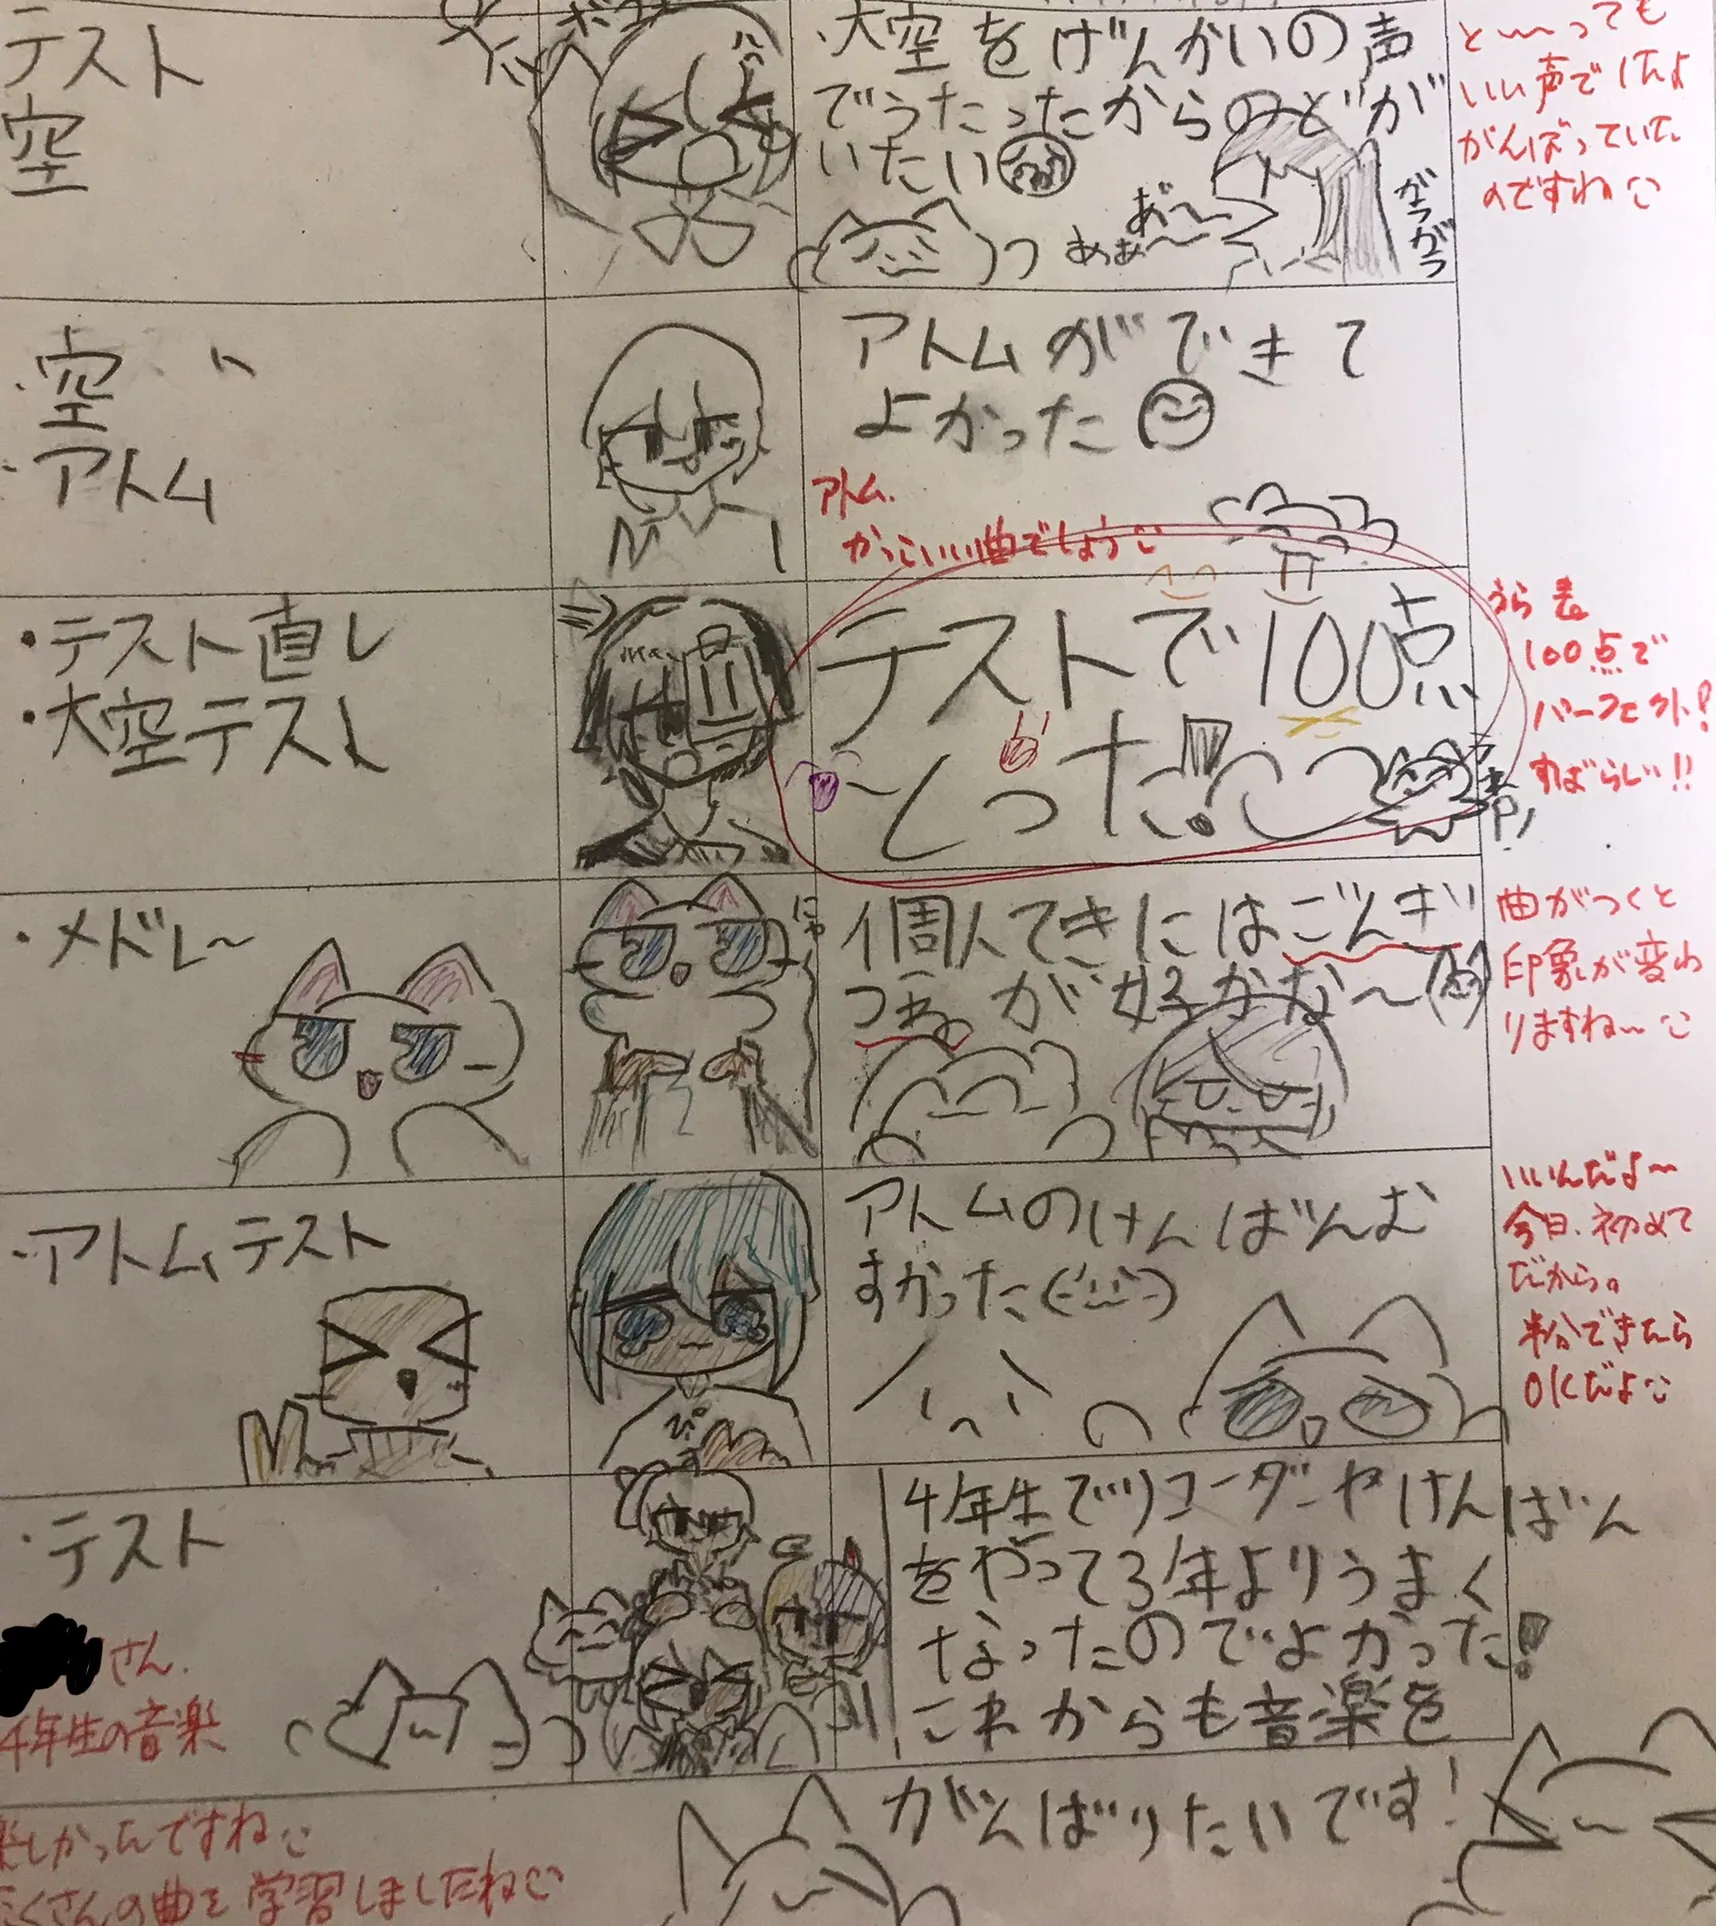 テスト
空
大空をげんかいの声
でうたったからのどが
いたい
あ゛〜
あぁ〜
ガラガラ
と〜っても
いい声でしたよ
がんばっていた
のですね
・空
・アトム
アトムができて
よかった
アトム、
かっこいい曲でしょう
・テスト直し
・大空テスト
テストで100点
とった!
うら表
100点で
パーフェクト!
すばらしい!!
・メドレ〜
個人てきにはごんぎ
つねが好かな〜
曲がつくと
印象が変わ
りますね〜
・アトムテスト
アトムのけんばんむ
ずかった
いいんだよ〜
今日、初めて
だから。
半分できたら
OKだよ
・テスト
4年生でリコーダーやけんばん
をやって3年よりうまく
なったのでよかった!
これからも音楽を
がんばりたいです!
さん、
4年生の音楽
楽しかったんですね
たくさんの曲を学習しましたね